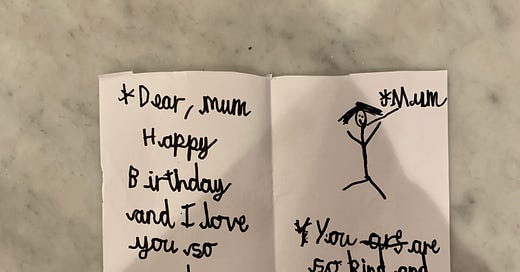 *Dear, mum
Happy
Birthday
and I love
you so
*Mum
*You are
so kind and